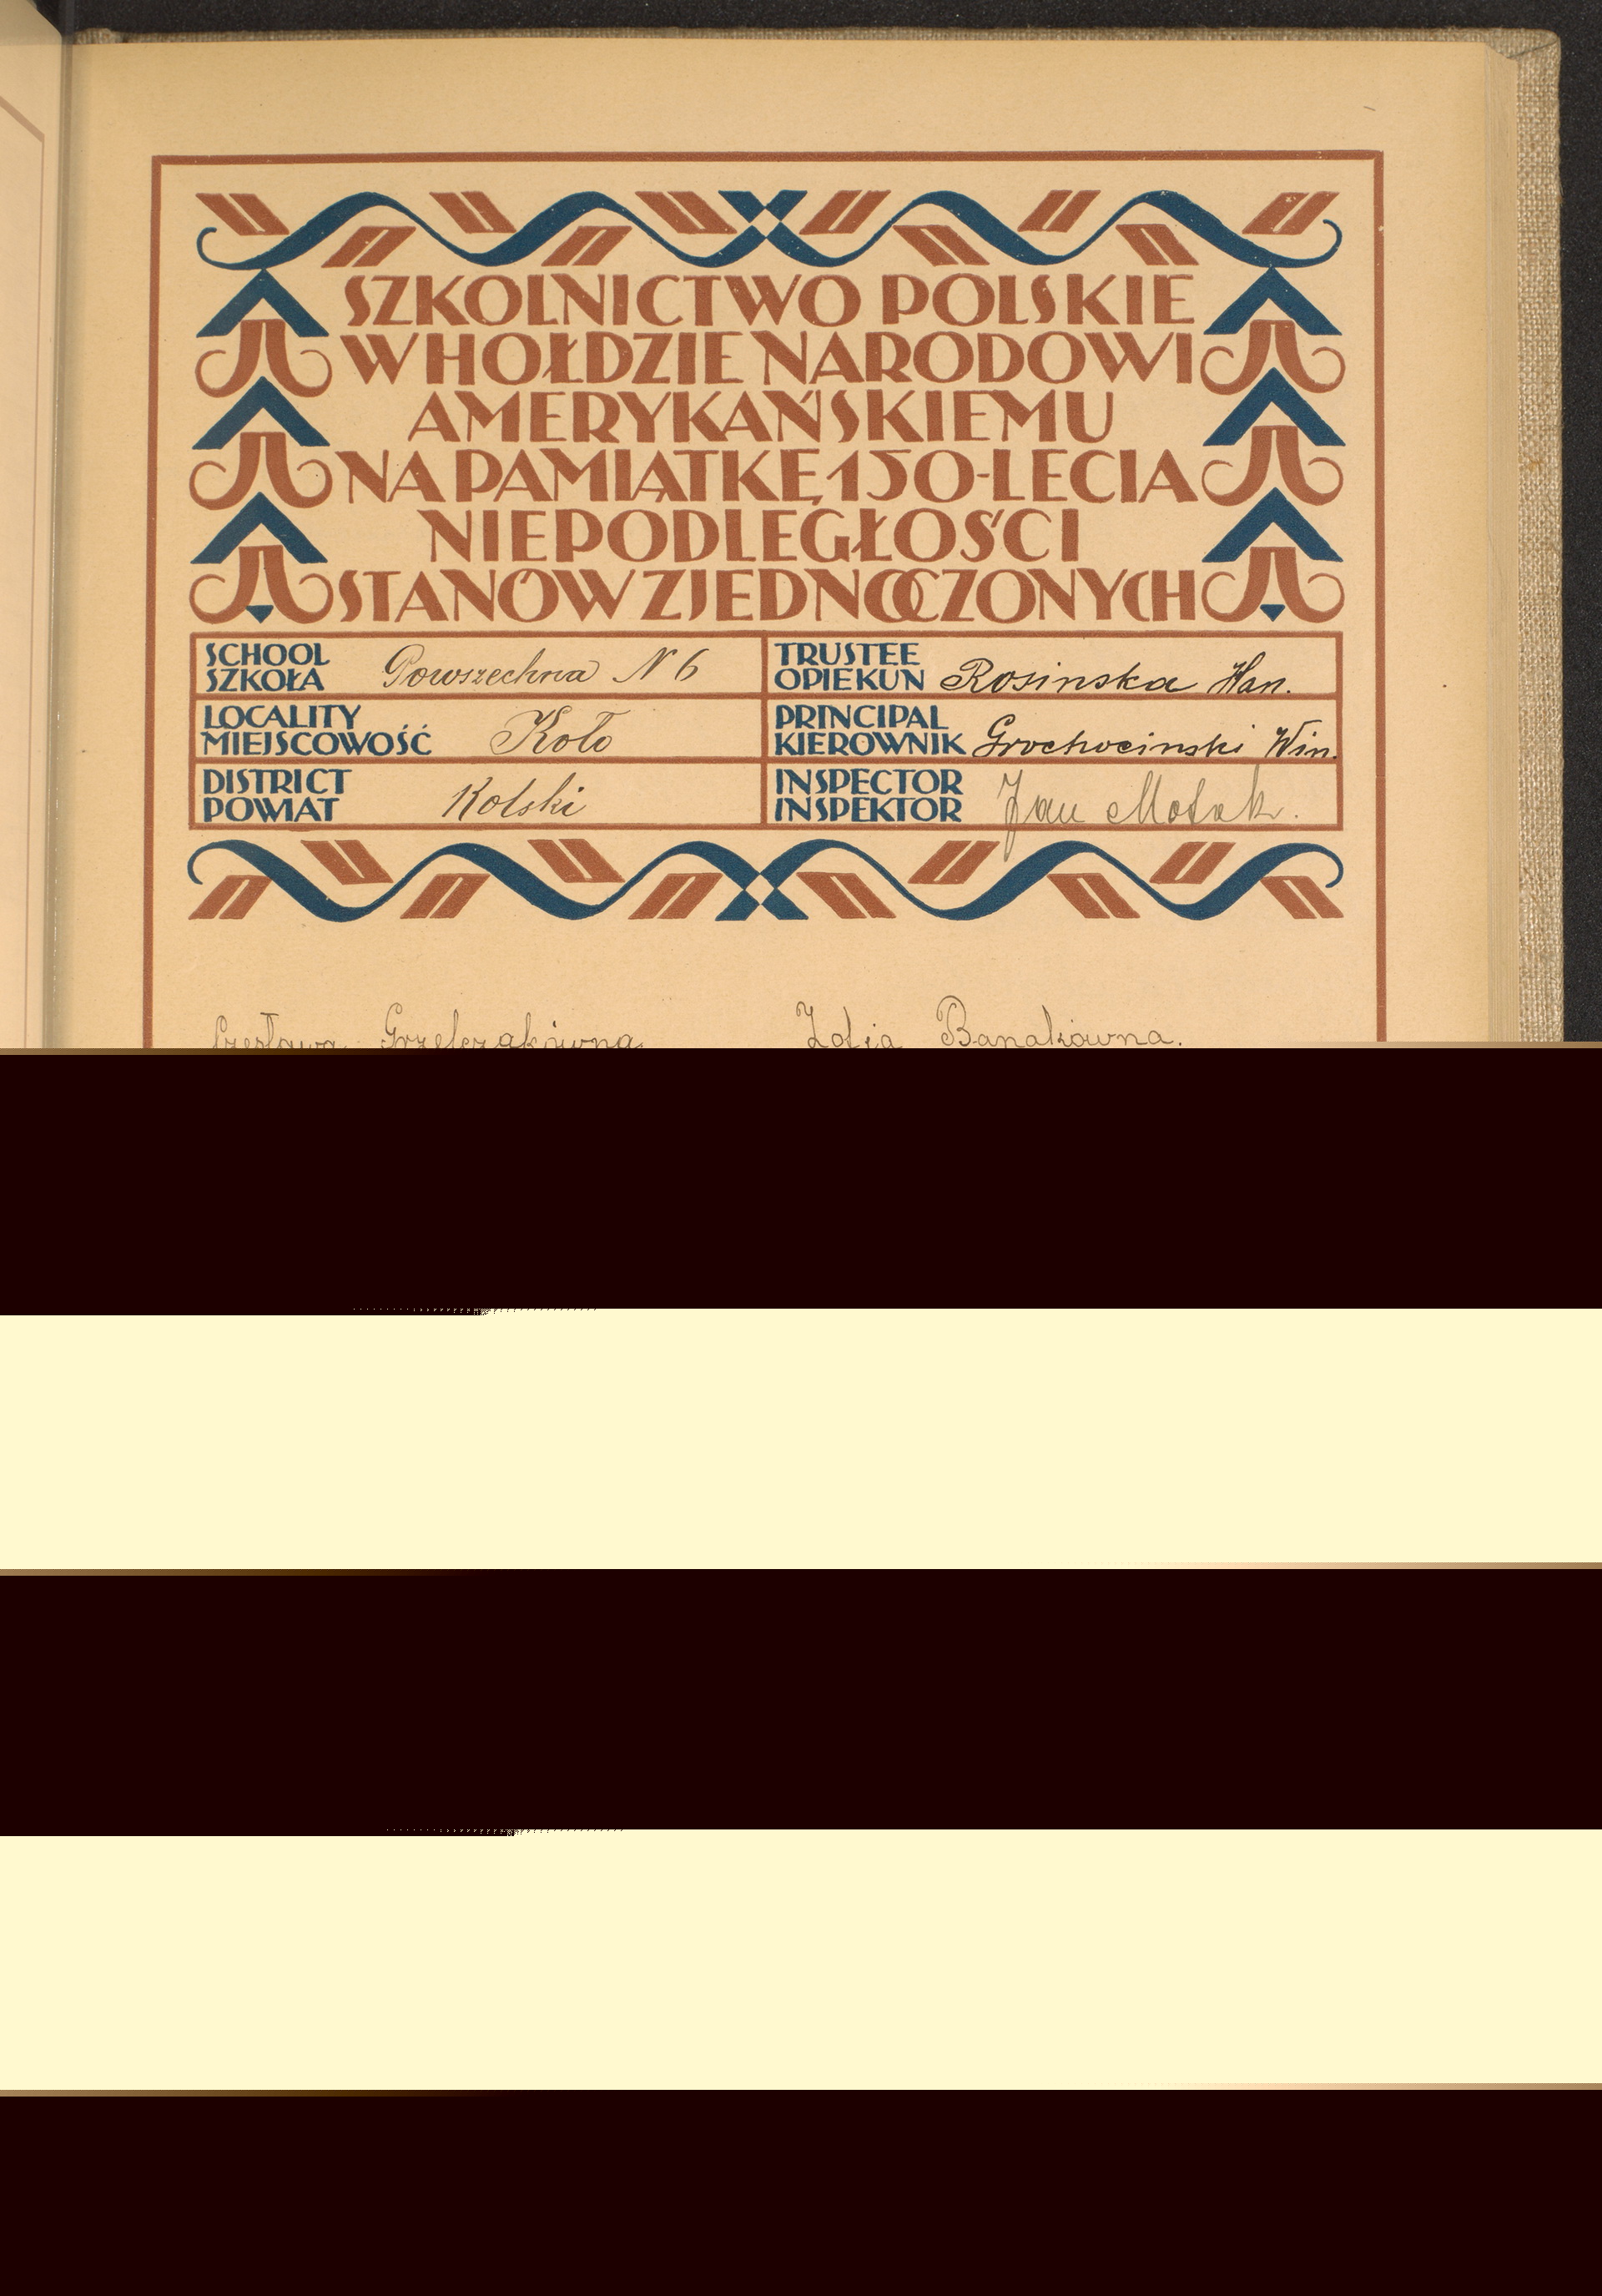 SZKOLNICTWO POLSKIE
W HOŁDZIE NARODOWI
AMERYKAŃSKIEMU
NA PAMIĄTKĘ 150-LECIA
NIEPODLEGŁOŚCI
STANÓW ZJEDNOCZONYCH
SCHOOL
SZKOŁA Powszechna N 6
LOCALITY
MIEJSCOWOŚĆ Koło
DISTRICT
POWIAT Kolski
TRUSTEE
OPIEKUN Rosinska Han.
PRINCIPAL
KIEROWNIK Grochocinski Win.
INSPECTOR
INSPEKTOR Jan
Czesława Grzelczakówna Zofja Banakówna.